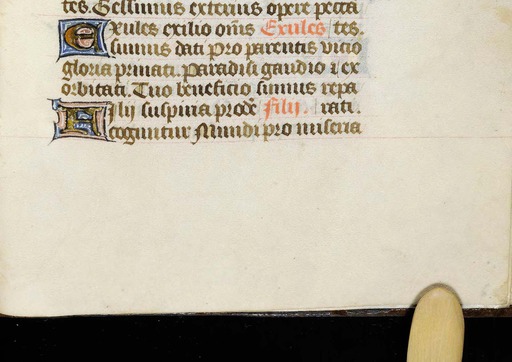 tes. Gessimus exterius opere pecca
Exules exilio om̅s Exules tes.
sumus dati Pro parentis vicio
gloria priuati. Paradisi gaudio ⁊ ex
orbitati. Tuo beneficio simus repa
Filij suspiria prodē Filij. rati.
coguntur Mundi pro miseria